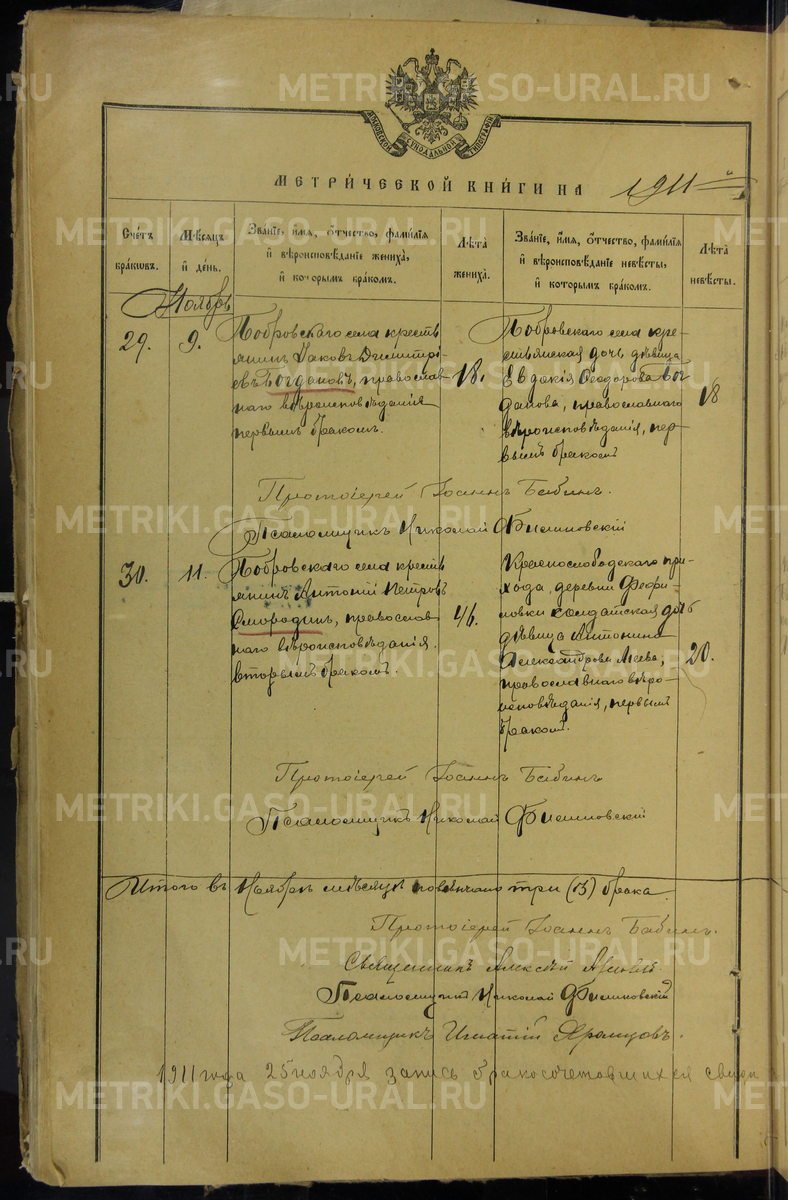 МОСКОВСКОЙ СѴНОДАЛЬНОЙ ТИПОГРАФІИ
МЕТРИ́ЧЕСКОЙ КНИ́ГИ НА 1911-й
Сче́тъ бра́ковъ.
Мѣ́сяцъ и҆ де́нь.
Зва́нїе, и҆́мя, ѻ҆́тчество, фами́лїя и҆ вѣроисповѣ́данїе жениха̀, и҆ кото́рымъ бра́комъ.
Лѣ́та жениха̀.
Зва́нїе, и҆́мя, ѻ҆́тчество, фами́лїя и҆ вѣроисповѣ́данїе невѣ́сты, и҆ кото́рымъ бра́комъ.
Лѣ́та невѣ́сты.
Ноябрь
29.
9.
Бобровскаго села кресть
янинъ Іаковъ Димитрі-
евъ Богдановъ, православ
наго вѣроисповѣданія
первымъ бракомъ.
18.
Бобровскаго села кре-
стьянская дочь дѣвица
Евдокія Ѳеодорова Бог
данова, православнаго
вѣроисповѣданія, пер
вымъ бракомъ
18
Протоіерей Іоаннъ Бабинъ.
Псаломщикъ Николай Филипповскій
30.
11.
Бобровскаго села кресть
янинъ Антоній Петровъ
Смородинъ, православ
наго вѣроисповѣданія.
вторымъ бракомъ.
46.
Краснослободскаго при-
хода, деревни
солдатская дочь
дѣвица Антонина
Александрова
православнаго вѣро-
исповѣданія, первымъ
бракомъ.
20.
Протоіерей Іоаннъ Бабинъ
Псаломщикъ Николай Филипповскій
Итого въ Ноябрѣ мѣсяцѣ повѣнчано три (3) брака.
Протоіерей Іоаннъ Бабинъ.
Священникъ Алексѣй
Псаломщикъ Николай Филипповскій
Псаломщикъ Игнатій
1911 года 25 ноября запись бракосочетовшихся
METRIKI.GASO-URAL.RU